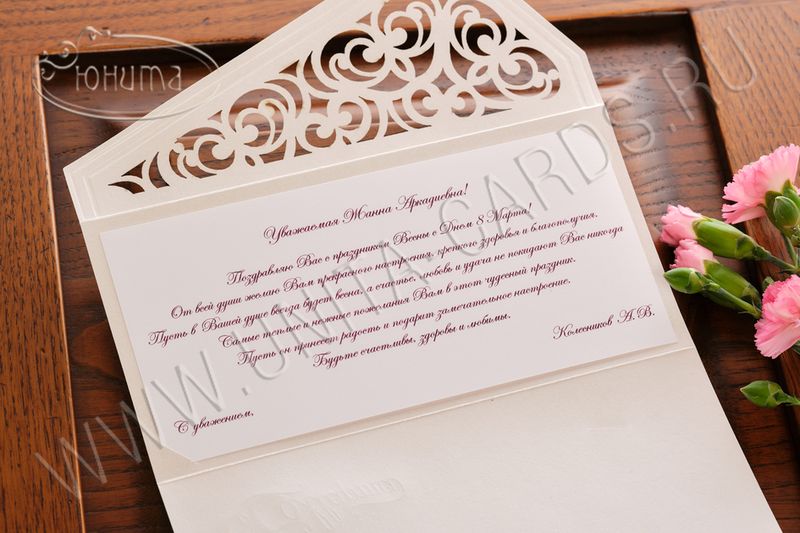 Юнита
Уважаемая Жанна Аркадиевна!
Поздравляю Вас с праздником Весны с Днем 8 Марта!
От всей души желаю Вам прекрасного настроения, крепкого здоровья и благополучия.
Пусть в Вашей душе всегда будет весна, а счастье, любовь и удача не покидают Вас никогда
Самые теплые и нежные пожелания Вам в этот чудесный праздник.
Пусть он принесет радость и подарит замечательное настроение.
Будьте счастливы, здоровы и любимы.
С уважением,
Колесников А.В.
WWW.UNITA-CARDS.RU